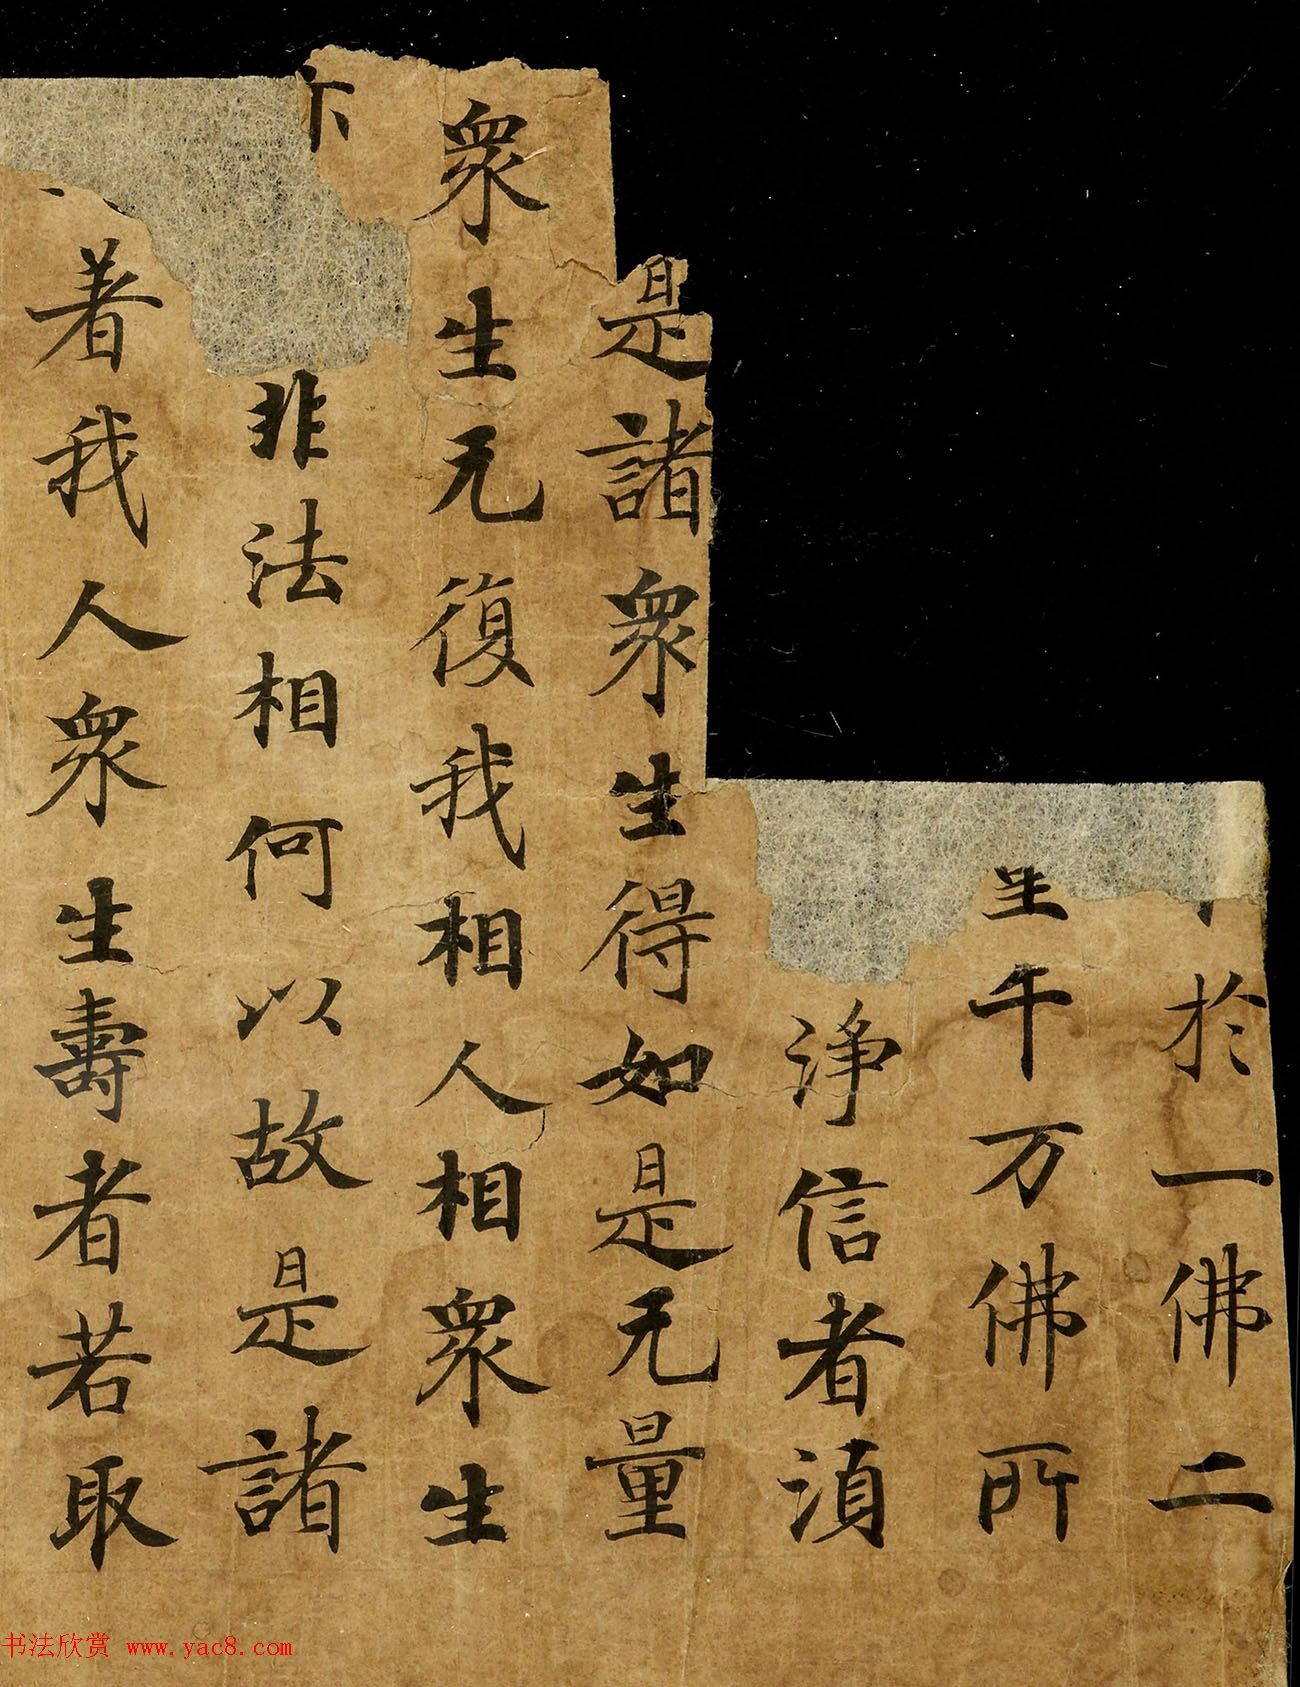 於一佛二
千万佛所
淨信者湏
是諸衆生得如是无量
衆生无復我相人相衆生
非法相何以故是諸
著我人衆生壽者若取
书法欣赏 www.yac8.com